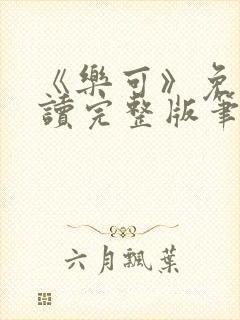 《樂可》免
讀完整版筆
六月飄葉